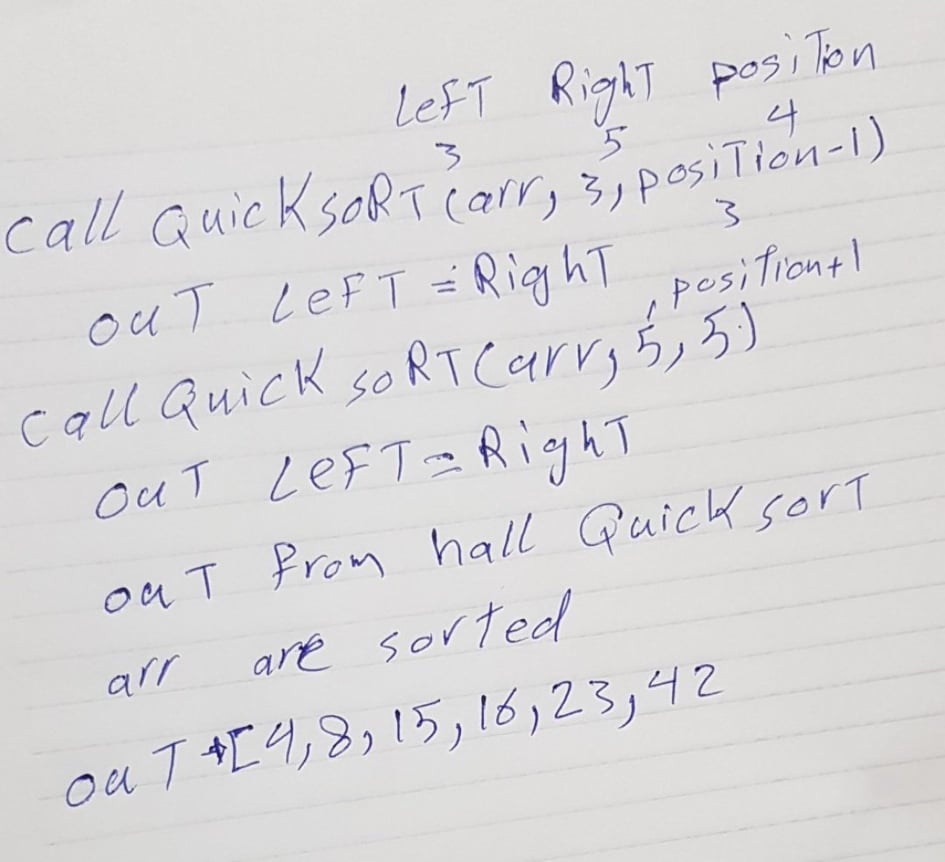 LeFT RighT posiTion
3 5 4
call QuickSoRT (arr, 3, posiTion-1)
3
ouT LeFT = RighT
, position+1
call Quick soRT (arr, 5, 5)
OuT LeFT = RighT
ouT from hall Quick sorT
arr are sorted
ouT → [4, 8, 15, 16, 23, 42